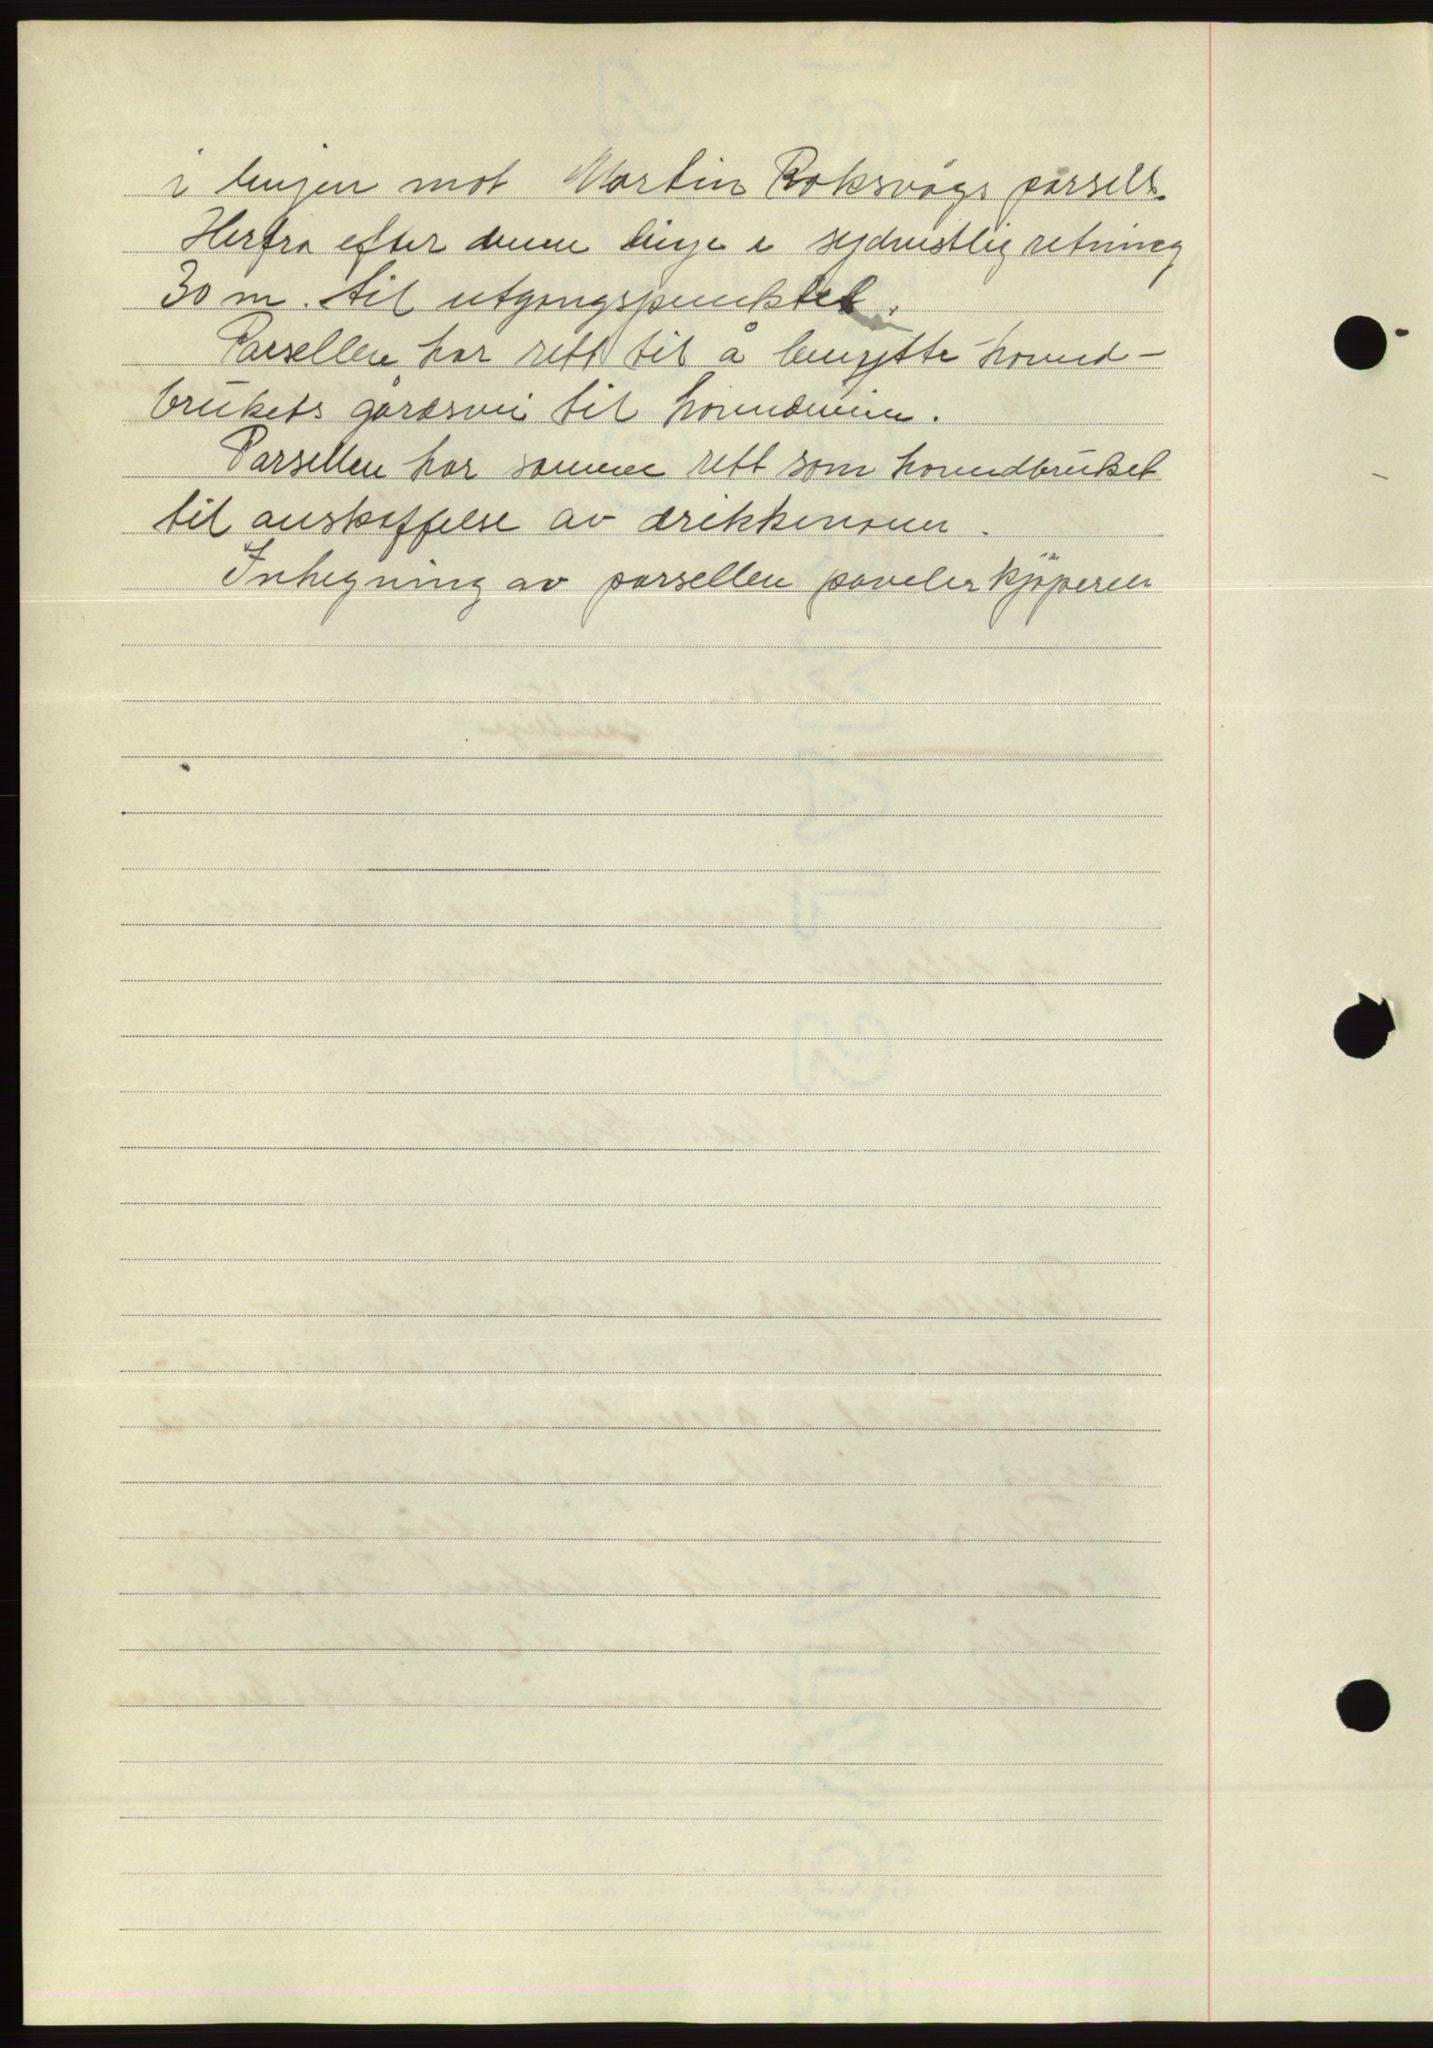 i linjen mot Martin Roksvågs parsell.
Herfra efter denne linje i sydvestlig retning
30 m. til utgangspunktet.
Parsellen har rett til å benytte hoved-
brukets gårdsvei til hovedveien.
Parsellen har samme rett som hovedbruket
til anskaffelse av drikkevann.
Inhegning av parsellen påveler kjøperen